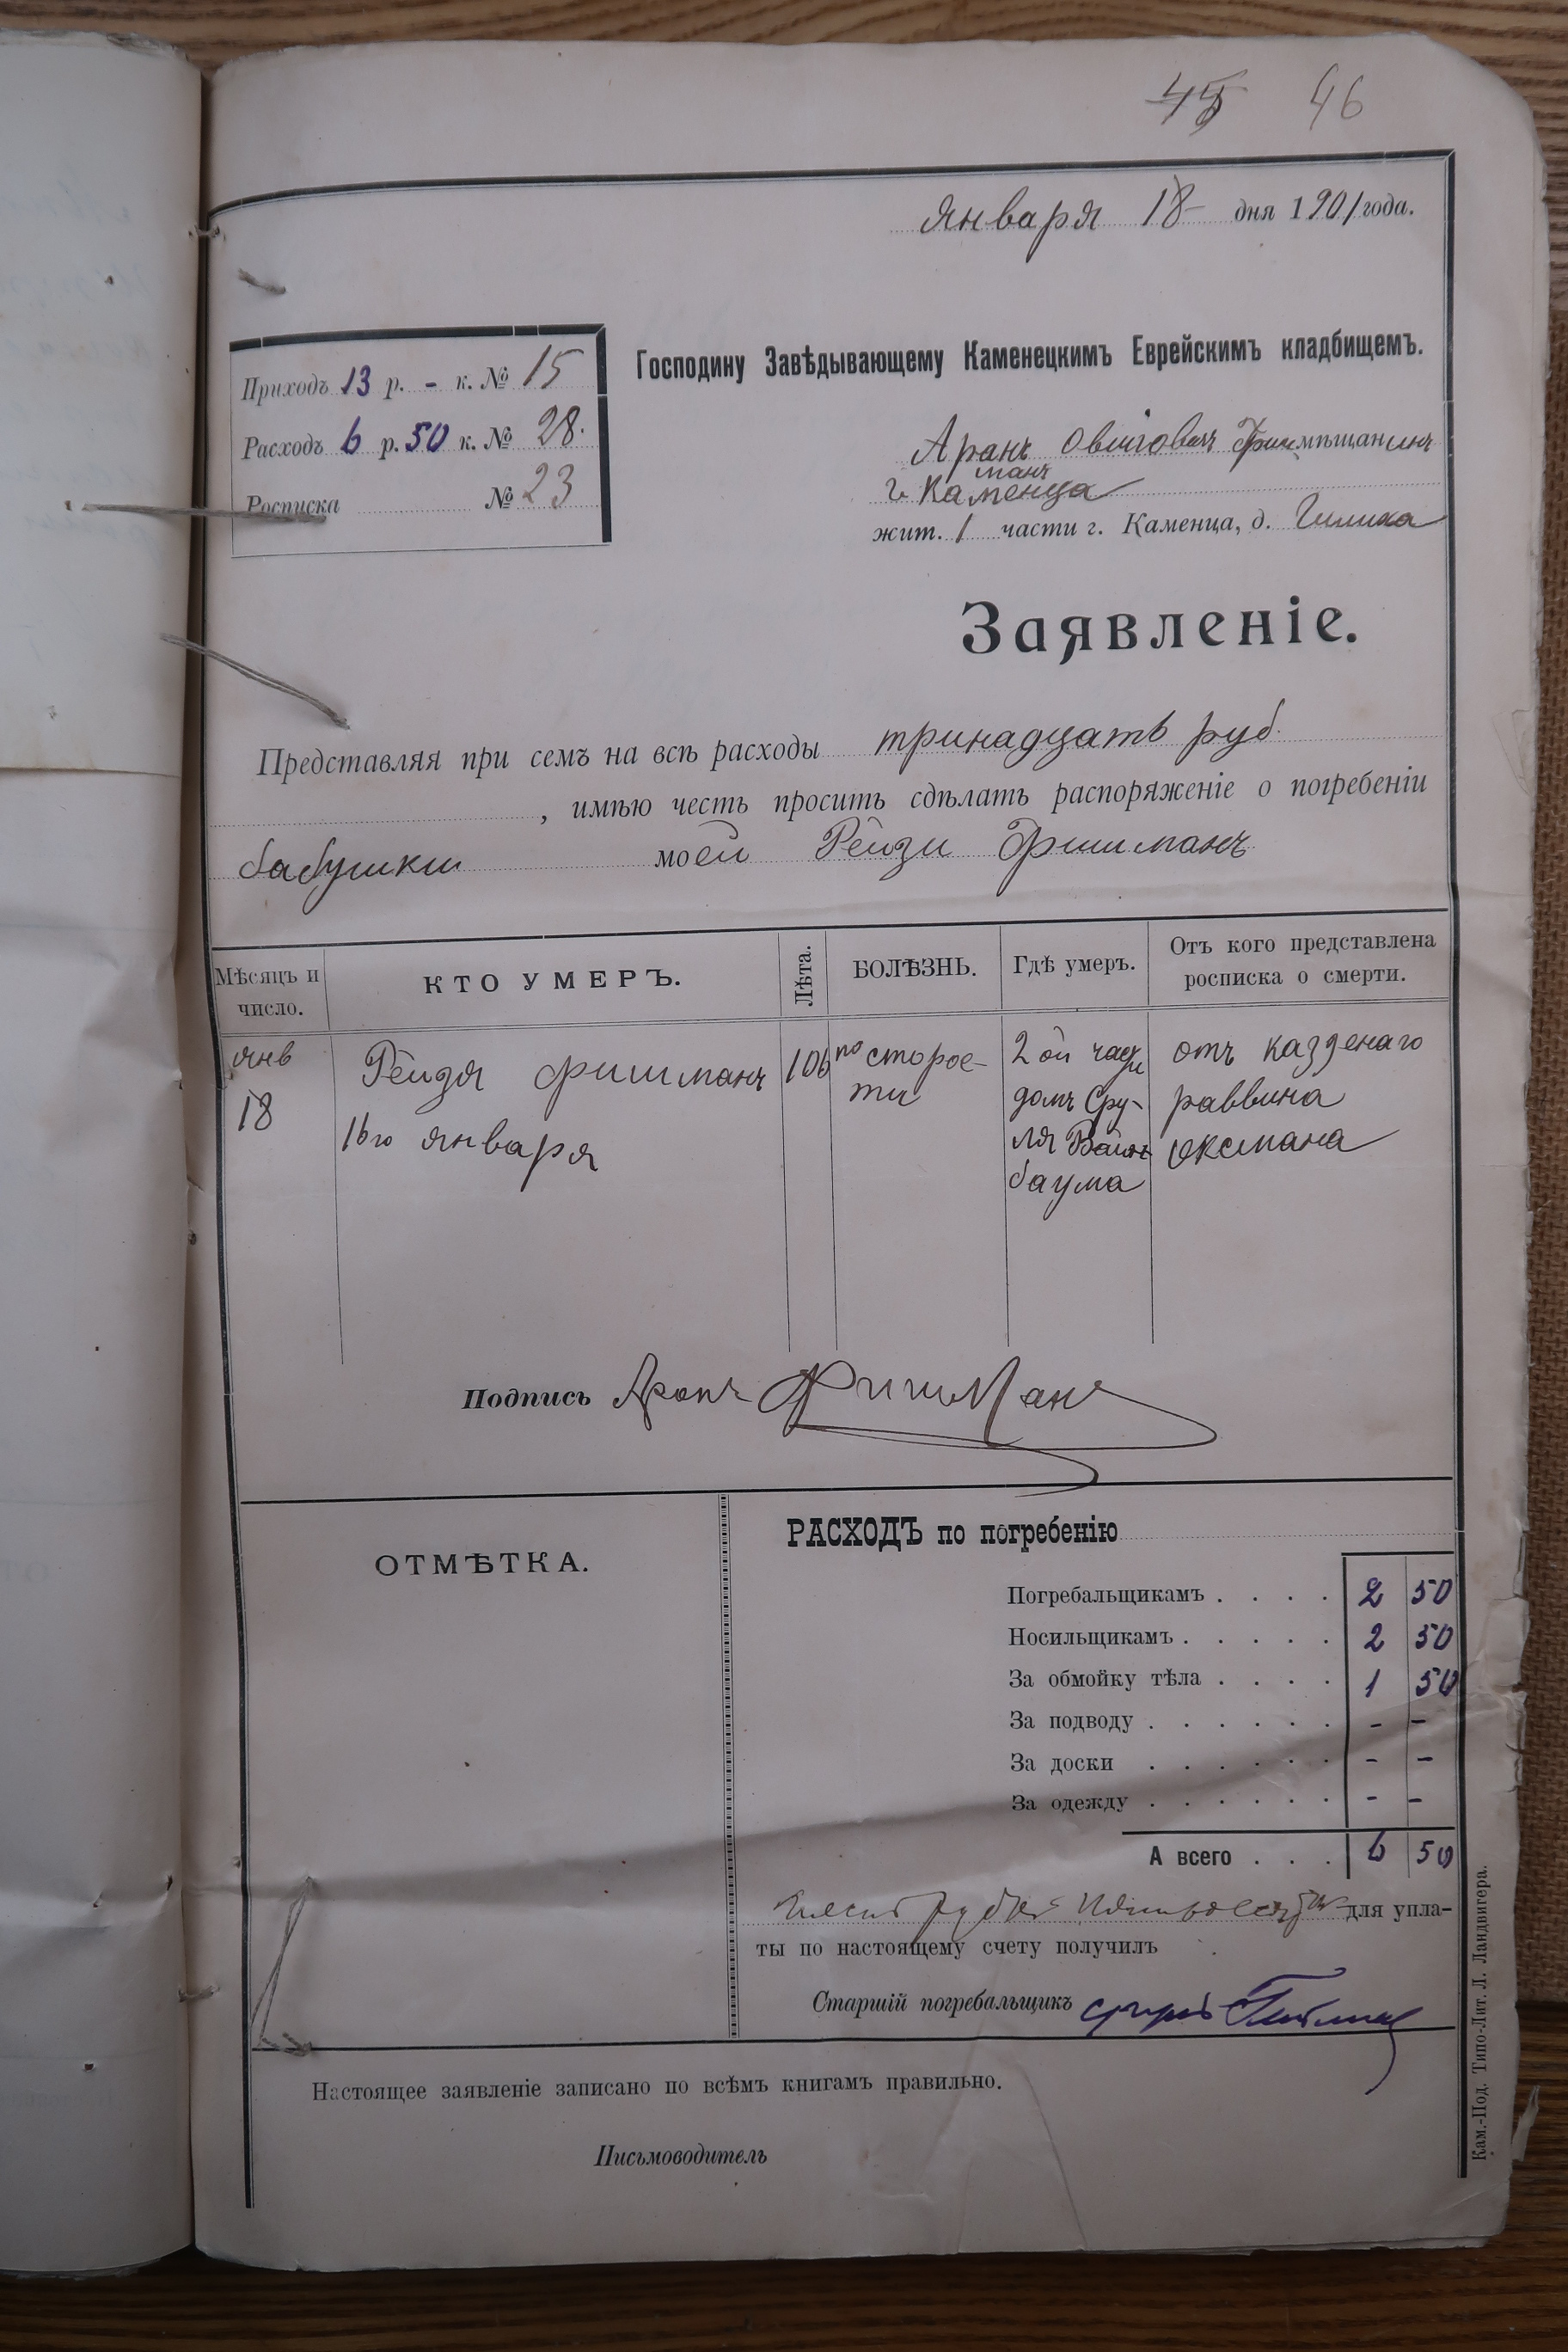 45 46
Января 18 дня 1901 года.
Приходъ 13 р. - к. № 15
Расходъ 6 р. 50 к. № 28.
Росписка № 23
Господину Завѣдывающему Каменецкимъ Еврейскимъ кладбищемъ.
Аранъ Фишманъ мѣщанинъ
г. Каменца
жит. 1 части г. Каменца, д.
Заявленіе.
Представляя при семъ на всѣ расходы тринадцать руб.
, имѣю честь просить сдѣлать распоряженіе о погребеніи
бабушки моей Рейзи Фишманъ
Мѣсяцъ и число. КТО УМЕРЪ. Лѣта. БОЛѢЗНЬ. Гдѣ умеръ. Отъ кого представлена росписка о смерти.
янв Рейзя Фишманъ 106 по старос- 2 ой части отъ казденаго
18 16го января ти домъ Сру- раввина
ля Вайн- Оксмана
баума
Подпись Аронъ Фишманъ
ОТМѢТКА.
РАСХОДЪ по погребенію
Погребальщикамъ . . . . 2 50
Носильщикамъ . . . . . 2 50
За обмойку тѣла . . . . 1 50
За подводу . . . . . . - -
За доски . . . . . . - -
За одежду . . . . . . - -
А всего . . . 6 50
для упла-
ты по настоящему счету получилъ
Старшій погребальщикъ
Настоящее заявленіе записано по всѣмъ книгамъ правильно.
Письмоводитель
Кам.-Под. Типо-Лит. Л. Ландвигера.